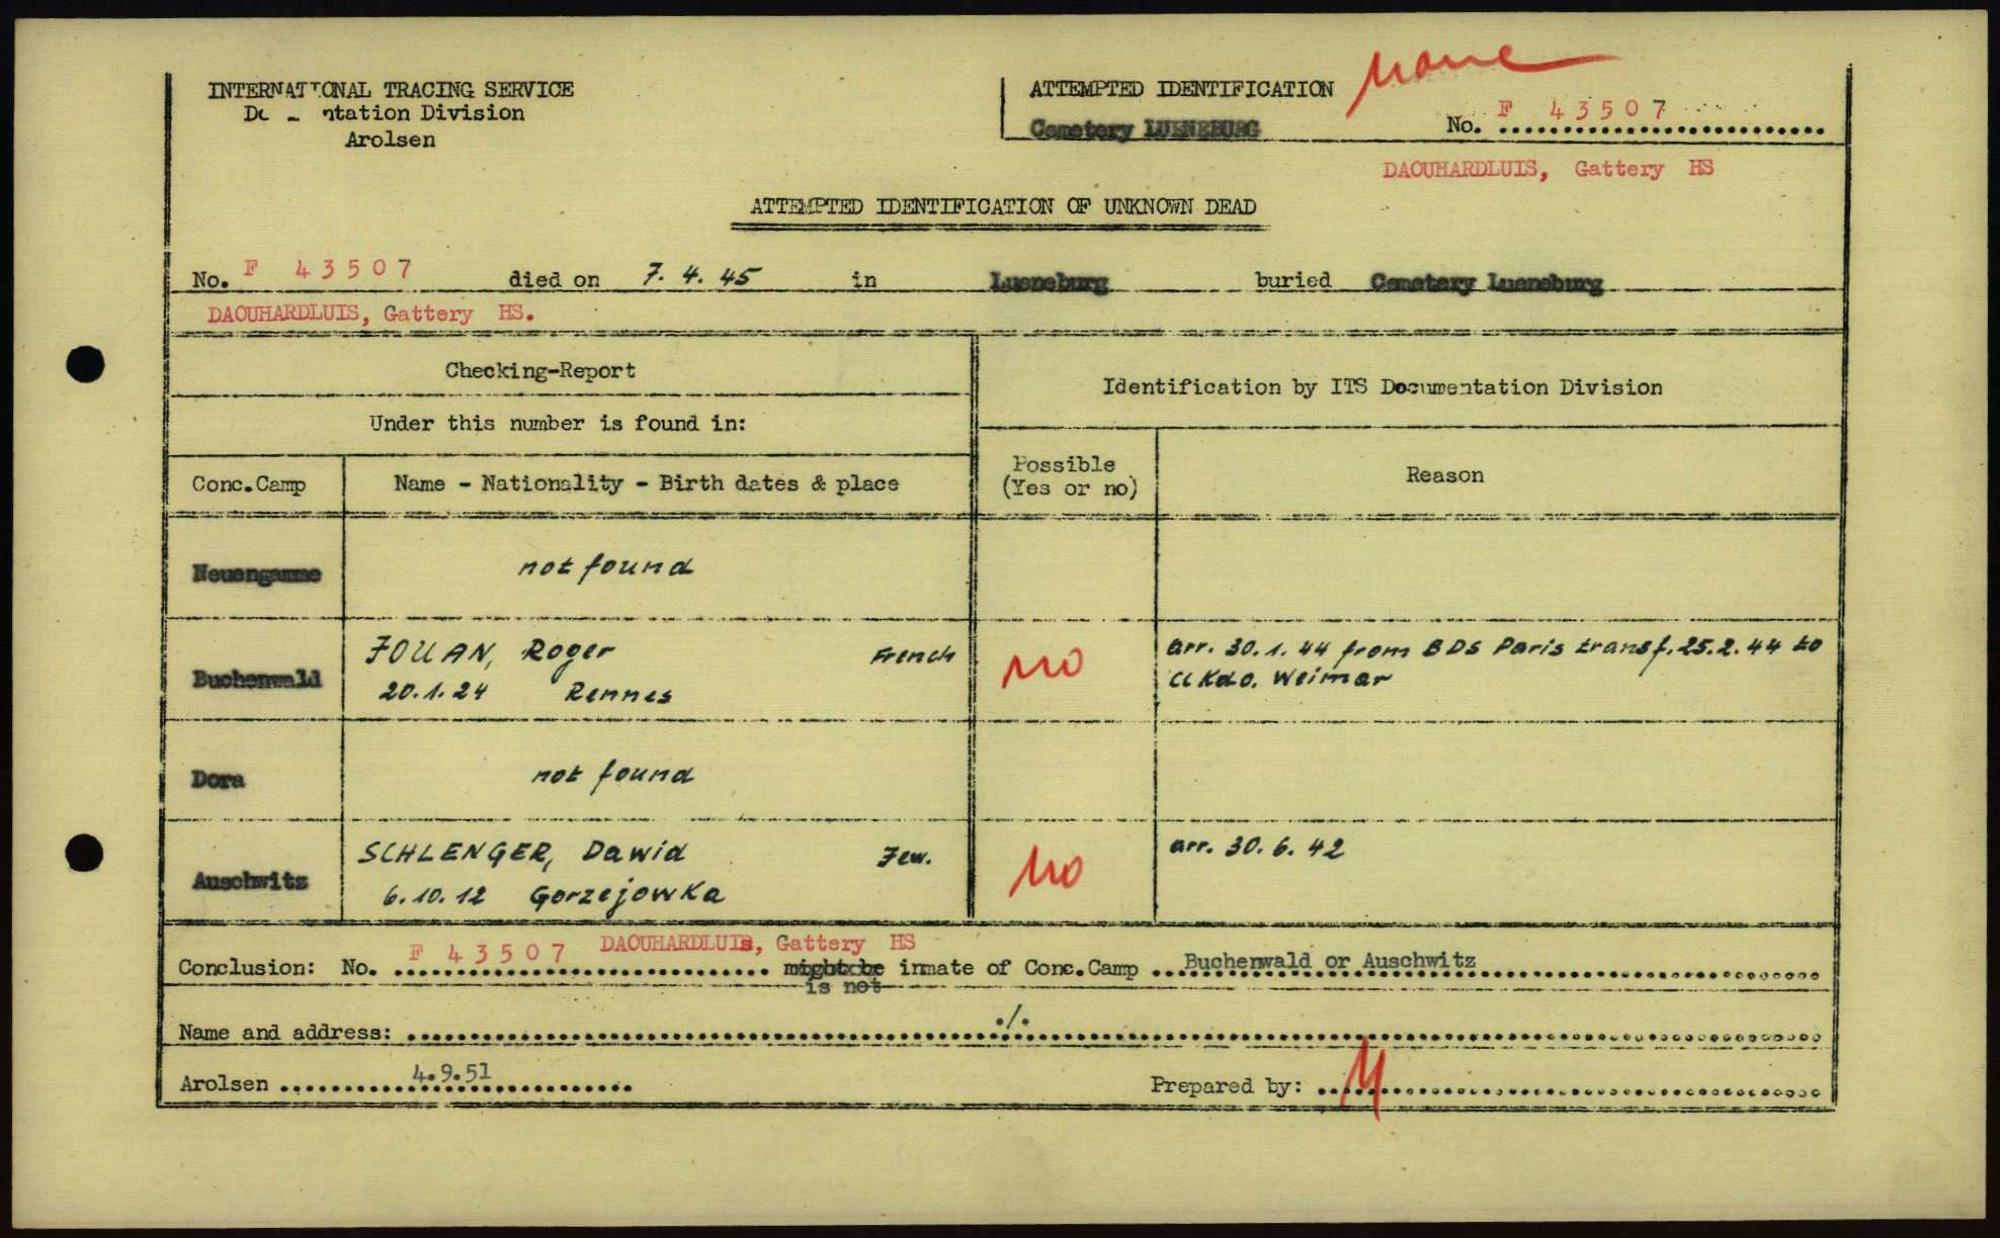 INTERNATIONAL TRACING SERVICE
ntation Division
Arolsen
ATTEMPTED IDENTIFICATION
none
Cemetery LUENEBURG
No. F 43507
DAOUHARDLUIS, Gattery HS
ATTEMPTED IDENTIFICATION OF UNKNOWN DEAD
No. F 43507 died on 7. 4. 45 in Lueneburg buried Cemetery Lueneburg
DAOUHARDLUIS, Gattery HS.
Checking-Report
Identification by ITS Documentation Division
Under this number is found in:
Conc.Camp
Name - Nationality - Birth dates & place
Possible
(Yes or no)
Reason
Neuengamme
not found
Buchenwald
JOUAN, Roger French
20.1.24 Rennes
no
arr. 30.1.44 from BDS Paris transf. 25.2.44 to
Kdo. Weimar
Dora
not found
Auschwitz
SCHLENGER, Dawid Jew.
6.10.12 Gorzejowka
no
arr. 30.6.42
Conclusion: No. F 43507 DAOUHARDLUIs, Gattery HS might be inmate of Conc.Camp Buchenwald or Auschwitz
is not
Name and address: ./.
Arolsen 4.9.51
Prepared by: